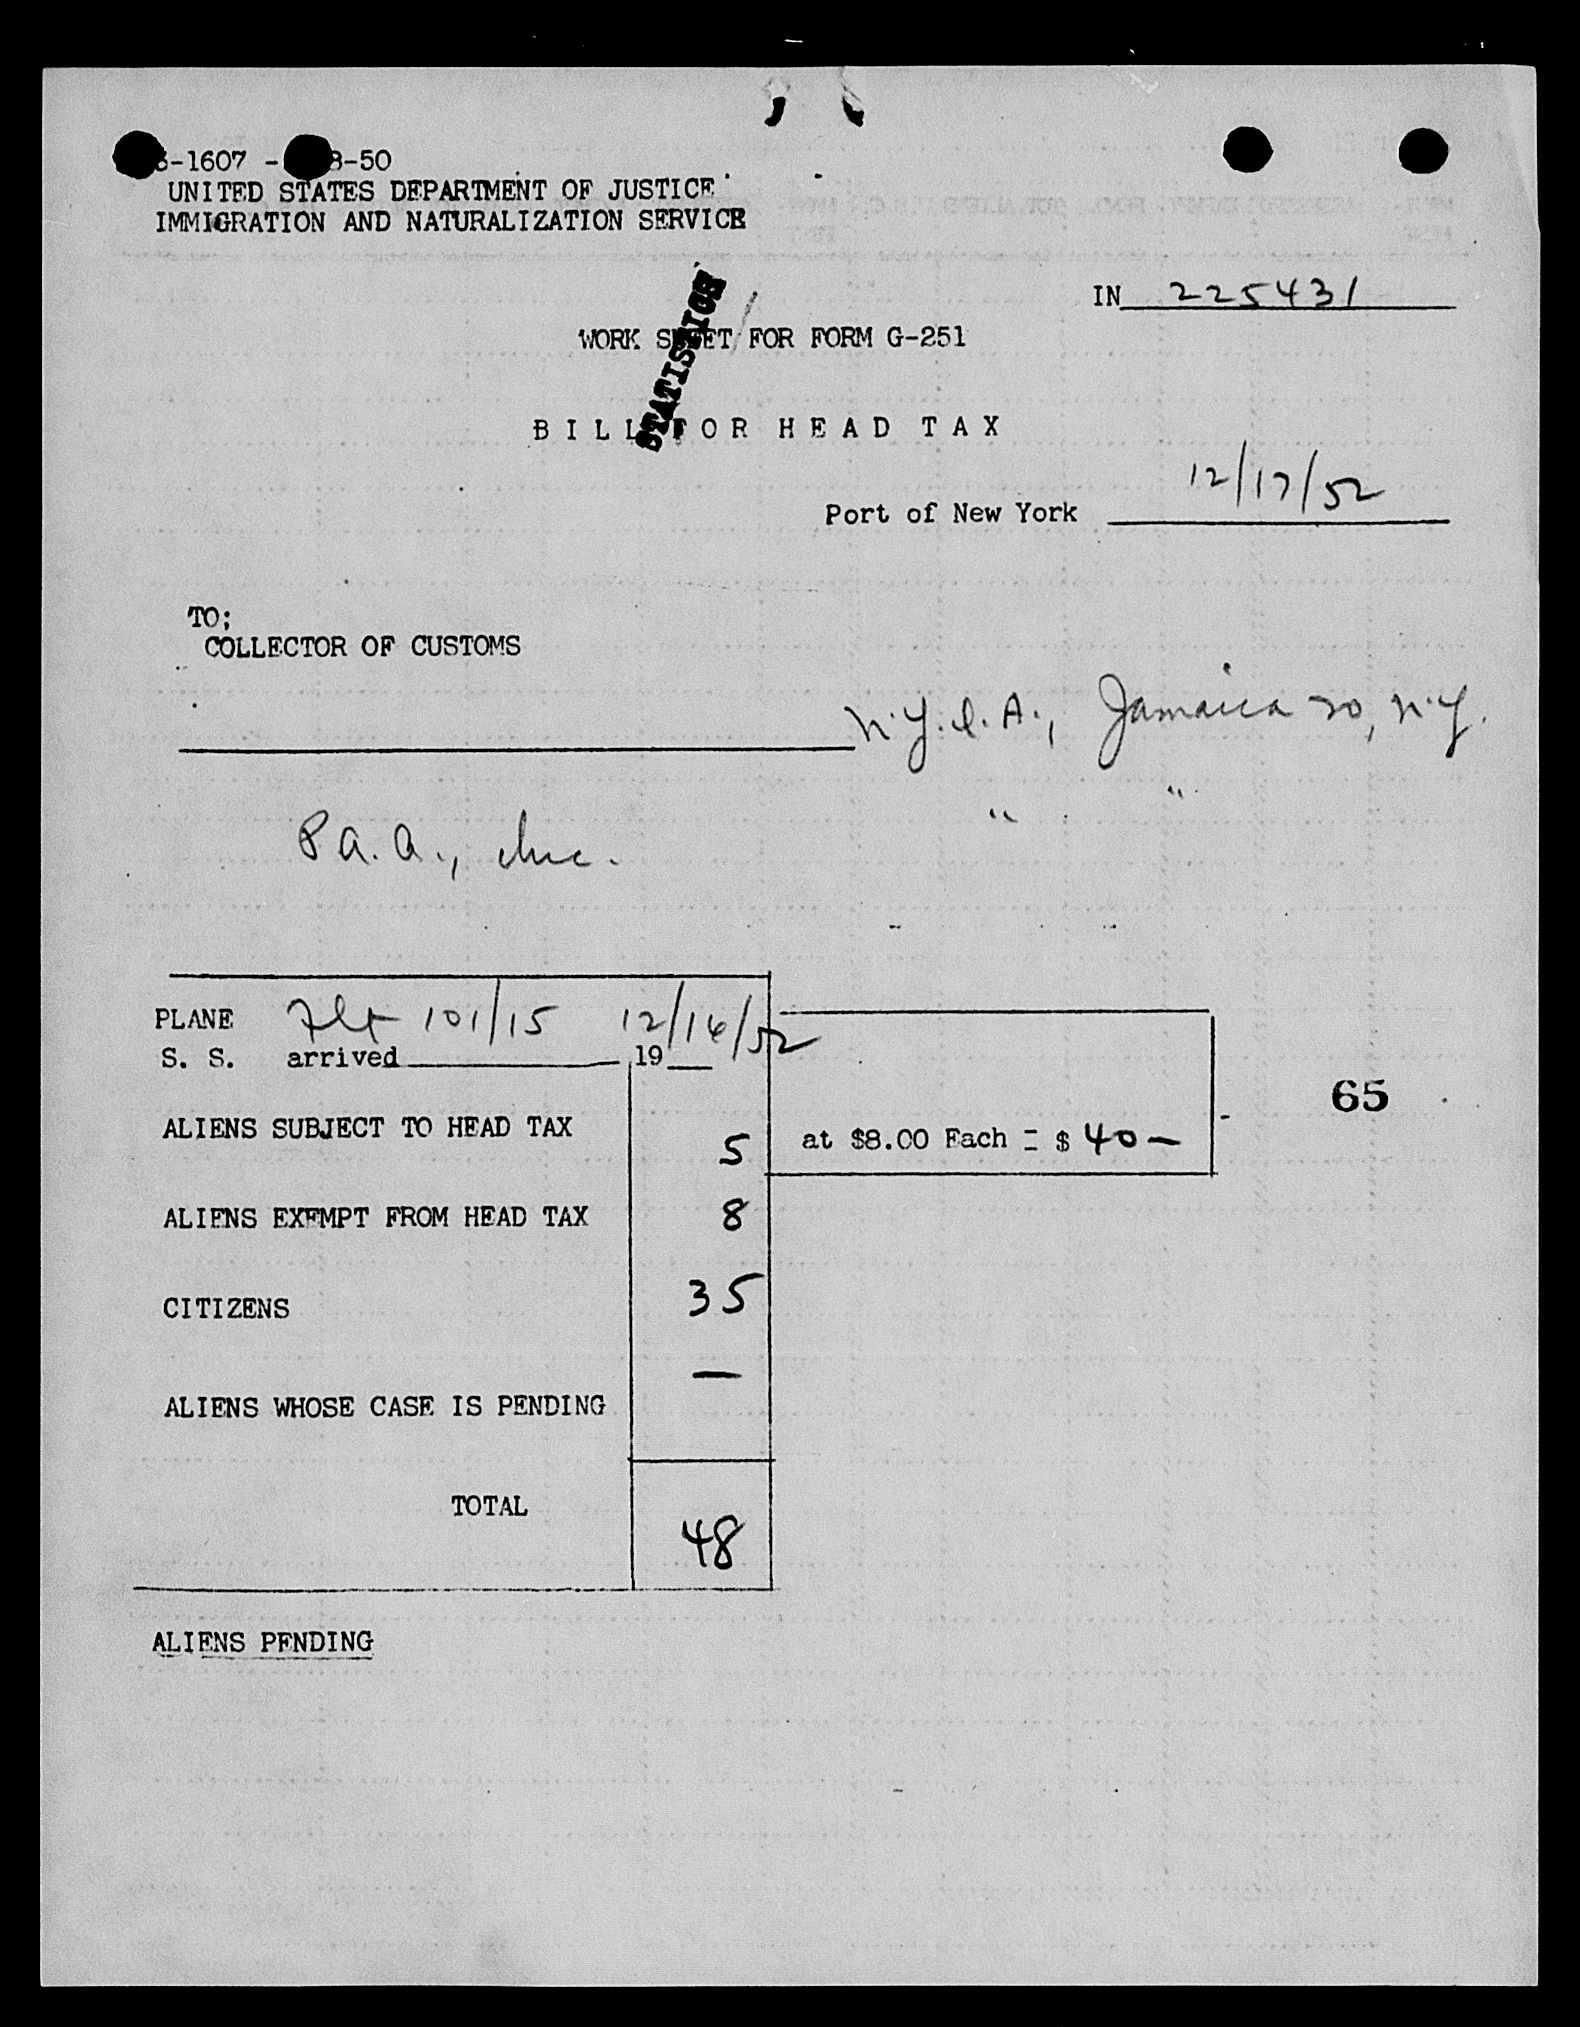 -1607 - 8-50
UNITED STATES DEPARTMENT OF JUSTICE
IMMIGRATION AND NATURALIZATION SERVICE
IN 225431
STATISTICS
WORK SHEET FOR FORM G-251
BILL FOR HEAD TAX
12/17/52
Port of New York
TO;
COLLECTOR OF CUSTOMS
N.Y.I.A., Jamaica 30, N.Y.
" "
P.A.A., Inc.
PLANE Flt 101/15 12/16/52
S. S. arrived 19
65
ALIENS SUBJECT TO HEAD TAX 5 at $8.00 Each = $ 40 —
ALIENS EXEMPT FROM HEAD TAX 8
CITIZENS 35
ALIENS WHOSE CASE IS PENDING —
TOTAL 48
ALIENS PENDING